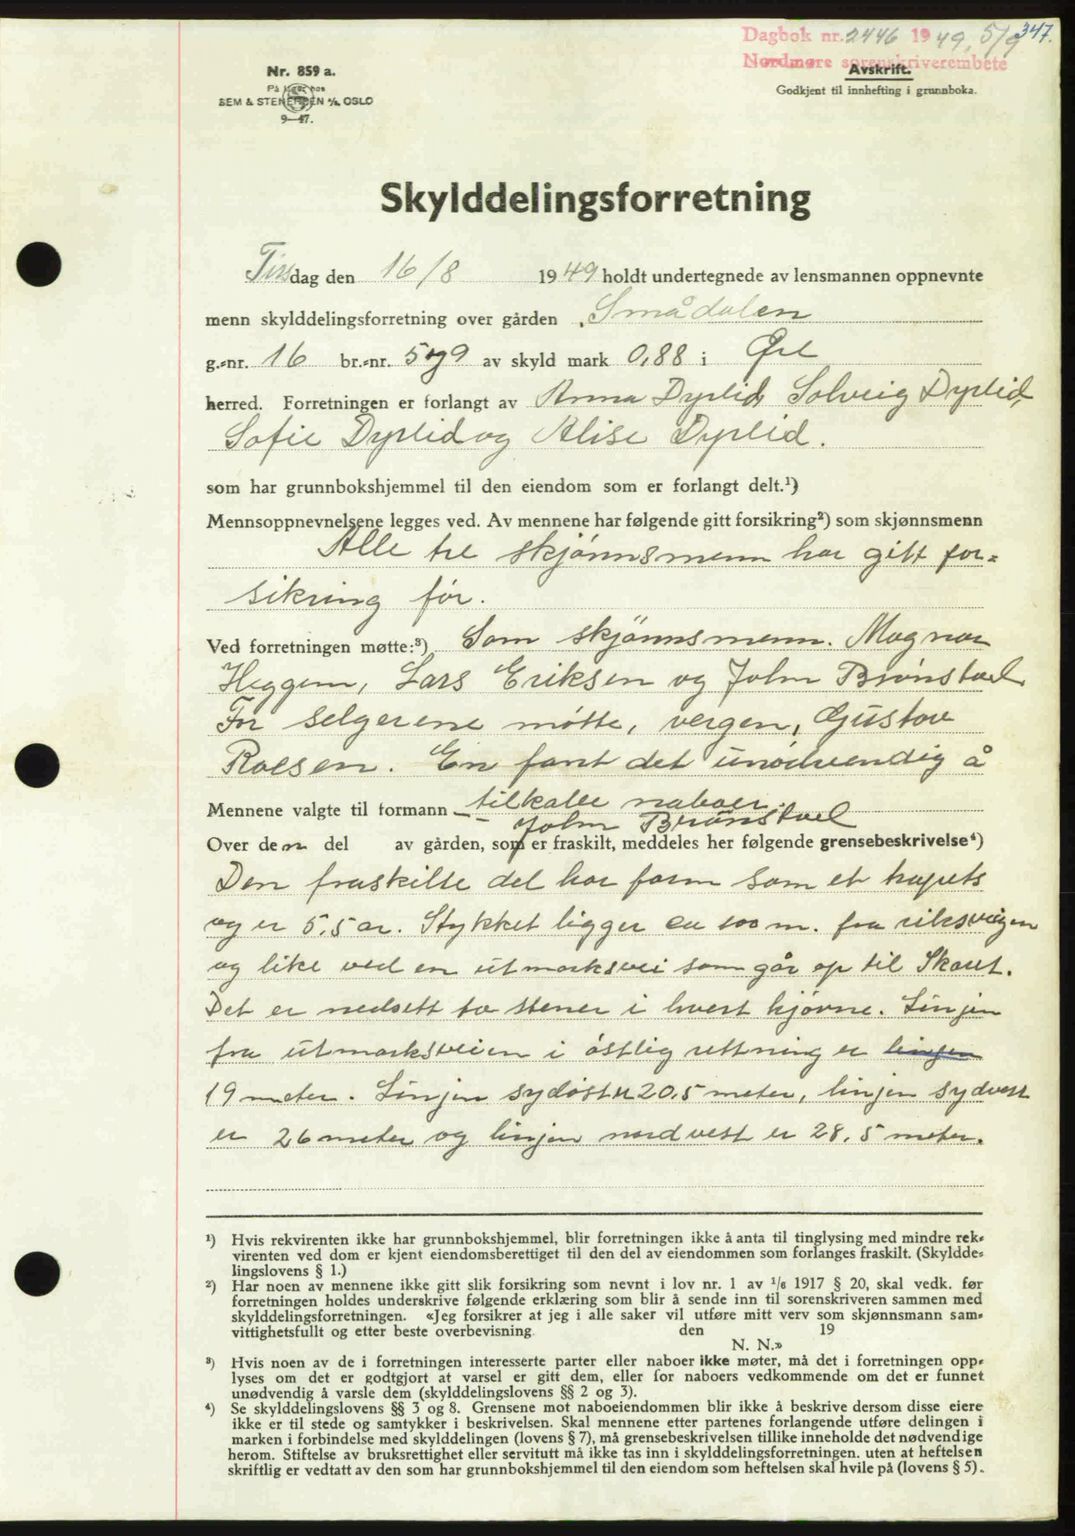 347.
Dagbok nr. 2446 1949, 5/9
Nordmøre sorenskriverembete
Avskrift.
Godkjent til innhefting i grunnboka.
Nr. 859 a.
På lager hos
SEM & STENERSEN A/S, OSLO
9—47.
Skylddelingsforretning
Tirsdag den 16/8 1949 holdt undertegnede av lensmannen oppnevnte
menn skylddelingsforretning over gården Smådalen
g.-nr. 16 br.-nr. 5 og 9 av skyld mark 0,88 i Øre
herred. Forretningen er forlangt av Anna Dyrlid, Solveig Dyrlid,
Sofie Dyrlid og Alise Dyrlid.
som har grunnbokshjemmel til den eiendom som er forlangt delt.¹)
Mennsoppnevnelsene legges ved. Av mennene har følgende gitt forsikring²) som skjønnsmenn
Alle tre skjønnsmenn har gitt for-
sikring før.
Ved forretningen møtte:³) Som skjønnsmenn. Magnar
Heggem, Lars Eriksen og John Brønstad
For selgerene møtte, vergen, Gustav
Roesen. En fant det unødvendig å
tilkalle naboer.
Mennene valgte til formann — John Brønstad
Over den del av gården, som er fraskilt, meddeles her følgende grensebeskrivelse⁴)
Den fraskilte del har form som et trapets
og er 5,5 ar. Stykket ligger ca 100 m. fra riksveigen
og like ved en utmarksvei som går op til Skaret.
Det er nedsett to stener i hvert hjørne. Linjen
fra utmarksveien i østlig rettning er linjen
19 meter. Linjen sydøst er 20,5 meter, linjen sydvest
er 26 meter og linjen nordvest er 28,5 meter.
¹) Hvis rekvirenten ikke har grunnbokshjemmel, blir forretningen ikke å anta til tinglysing med mindre rek-
virenten ved dom er kjent eiendomsberettiget til den del av eiendommen som forlanges fraskilt. (Skyldde-
lingslovens § 1.)
²) Har noen av mennene ikke gitt slik forsikring som nevnt i lov nr. 1 av 1/6 1917 § 20, skal vedk. før
forretningen holdes underskrive følgende erklæring som blir å sende inn til sorenskriveren sammen med
skylddelingsforretningen. «Jeg forsikrer at jeg i alle saker vil utføre mitt verv som skjønnsmann sam-
vittighetsfullt og etter beste overbevisning den 19
N. N.»
³) Hvis noen av de i forretningen interesserte parter eller naboer ikke møter, må det i forretningen opp-
lyses om det er godtgjort at varsel er gitt dem, eller for naboers vedkommende om det er funnet
unødvendig å varsle dem (skylddelingslovens §§ 2 og 3).
⁴) Se skylddelingslovens §§ 3 og 8. Grensene mot naboeiendommen blir ikke å beskrive dersom disse eiere
ikke er til stede og samtykker i beskrivelsen. Skal mennene etter partenes forlangende utføre delingen i
marken i forbindelse med skylddelingen (lovens § 7), må grensebeskrivelsen tillike inneholde det nødvendige
herom. Stiftelse av bruksrettighet eller servitutt må ikke tas inn i skylddelingsforretningen. uten at heftelsen
skriftlig er vedtatt av den som har grunnbokshjemmel til den eiendom som heftelsen skal hvile på (lovens § 5).